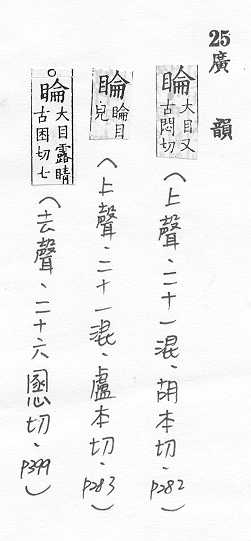 25廣韻
睔大目又古悶切(上聲、二十一混、胡本切、P282)
睔睔目皃(上聲、二十一混、盧本切、P283)
○睔大目露睛古困切七(去聲、二十六慁切、P399)